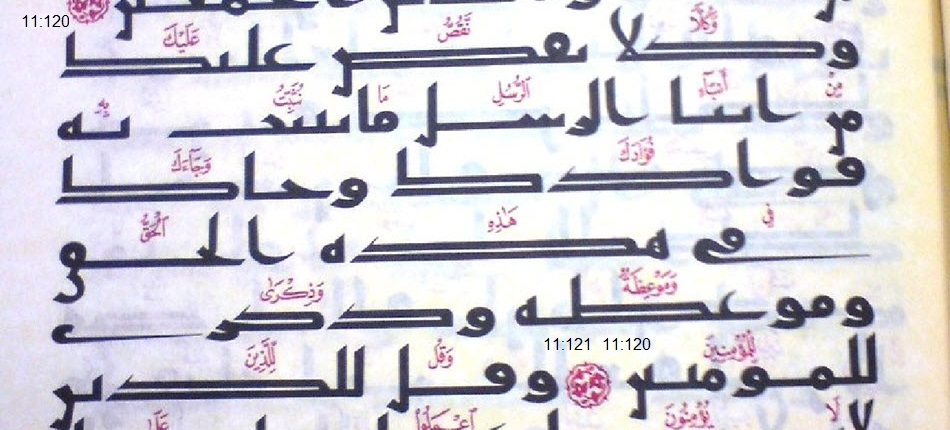 11:120
وَكُلًّا نَّقُصُّ عَلَيْكَ
وكلا نقص عليك
مِنْ أَنبَآءِ ٱلرُّسُلِ مَا نُثَبِّتُ بِهِ
من انبا الرسل ما نثبت به
فُؤَادَكَ وَجَآءَكَ
فوادك وجاك
فِي هَٰذِهِ ٱلْحَقُّ
في هذه الحق
وَمَوْعِظَةٌ وَذِكْرَىٰ
وموعظه وذكرى
11:121 11:120
لِلْمُؤْمِنِينَ وَقُل لِّلَّذِينَ
للمومنين وقل للذين
لَا يُؤْمِنُونَ ٱعْمَلُوا عَلَىٰ